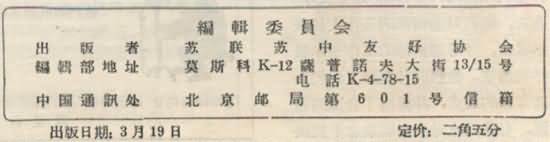 編輯委員会
出版者 苏联苏中友好协会
編輯部地址 莫斯科K-12薩普諾夫大街13/15号
电話K-4-78-15
中国通訊处 北京邮局第601号信箱
出版日期：3月19日 定价：二角五分